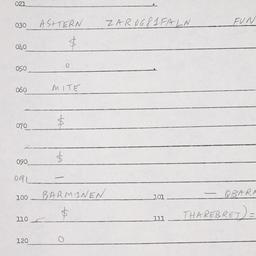 021
030 ASHTERN ZAROGRIFALN FUN
040 $
050 0
060 MITE
070 $
090 $
091 —
100 BARMINEN 101 — QBARA
110 $ 111 THAREBRET)=
120 0